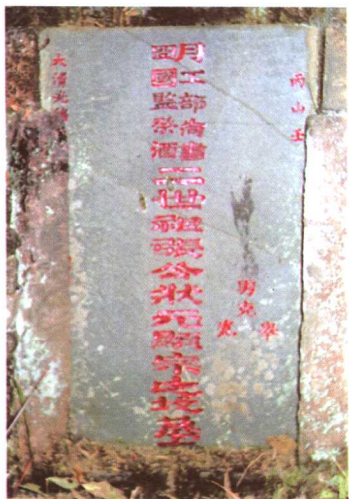 丙山壬
明
工部尚書
國監祭酒
二世祖張公狀元顯宗之墳墓
男克
大清光緒